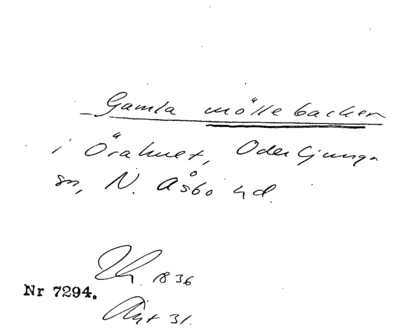 Gamla möllebacken
i Örahuet, Oderljunga
sn, N. Åsbo hd.
1836
Nr 7294.
31.